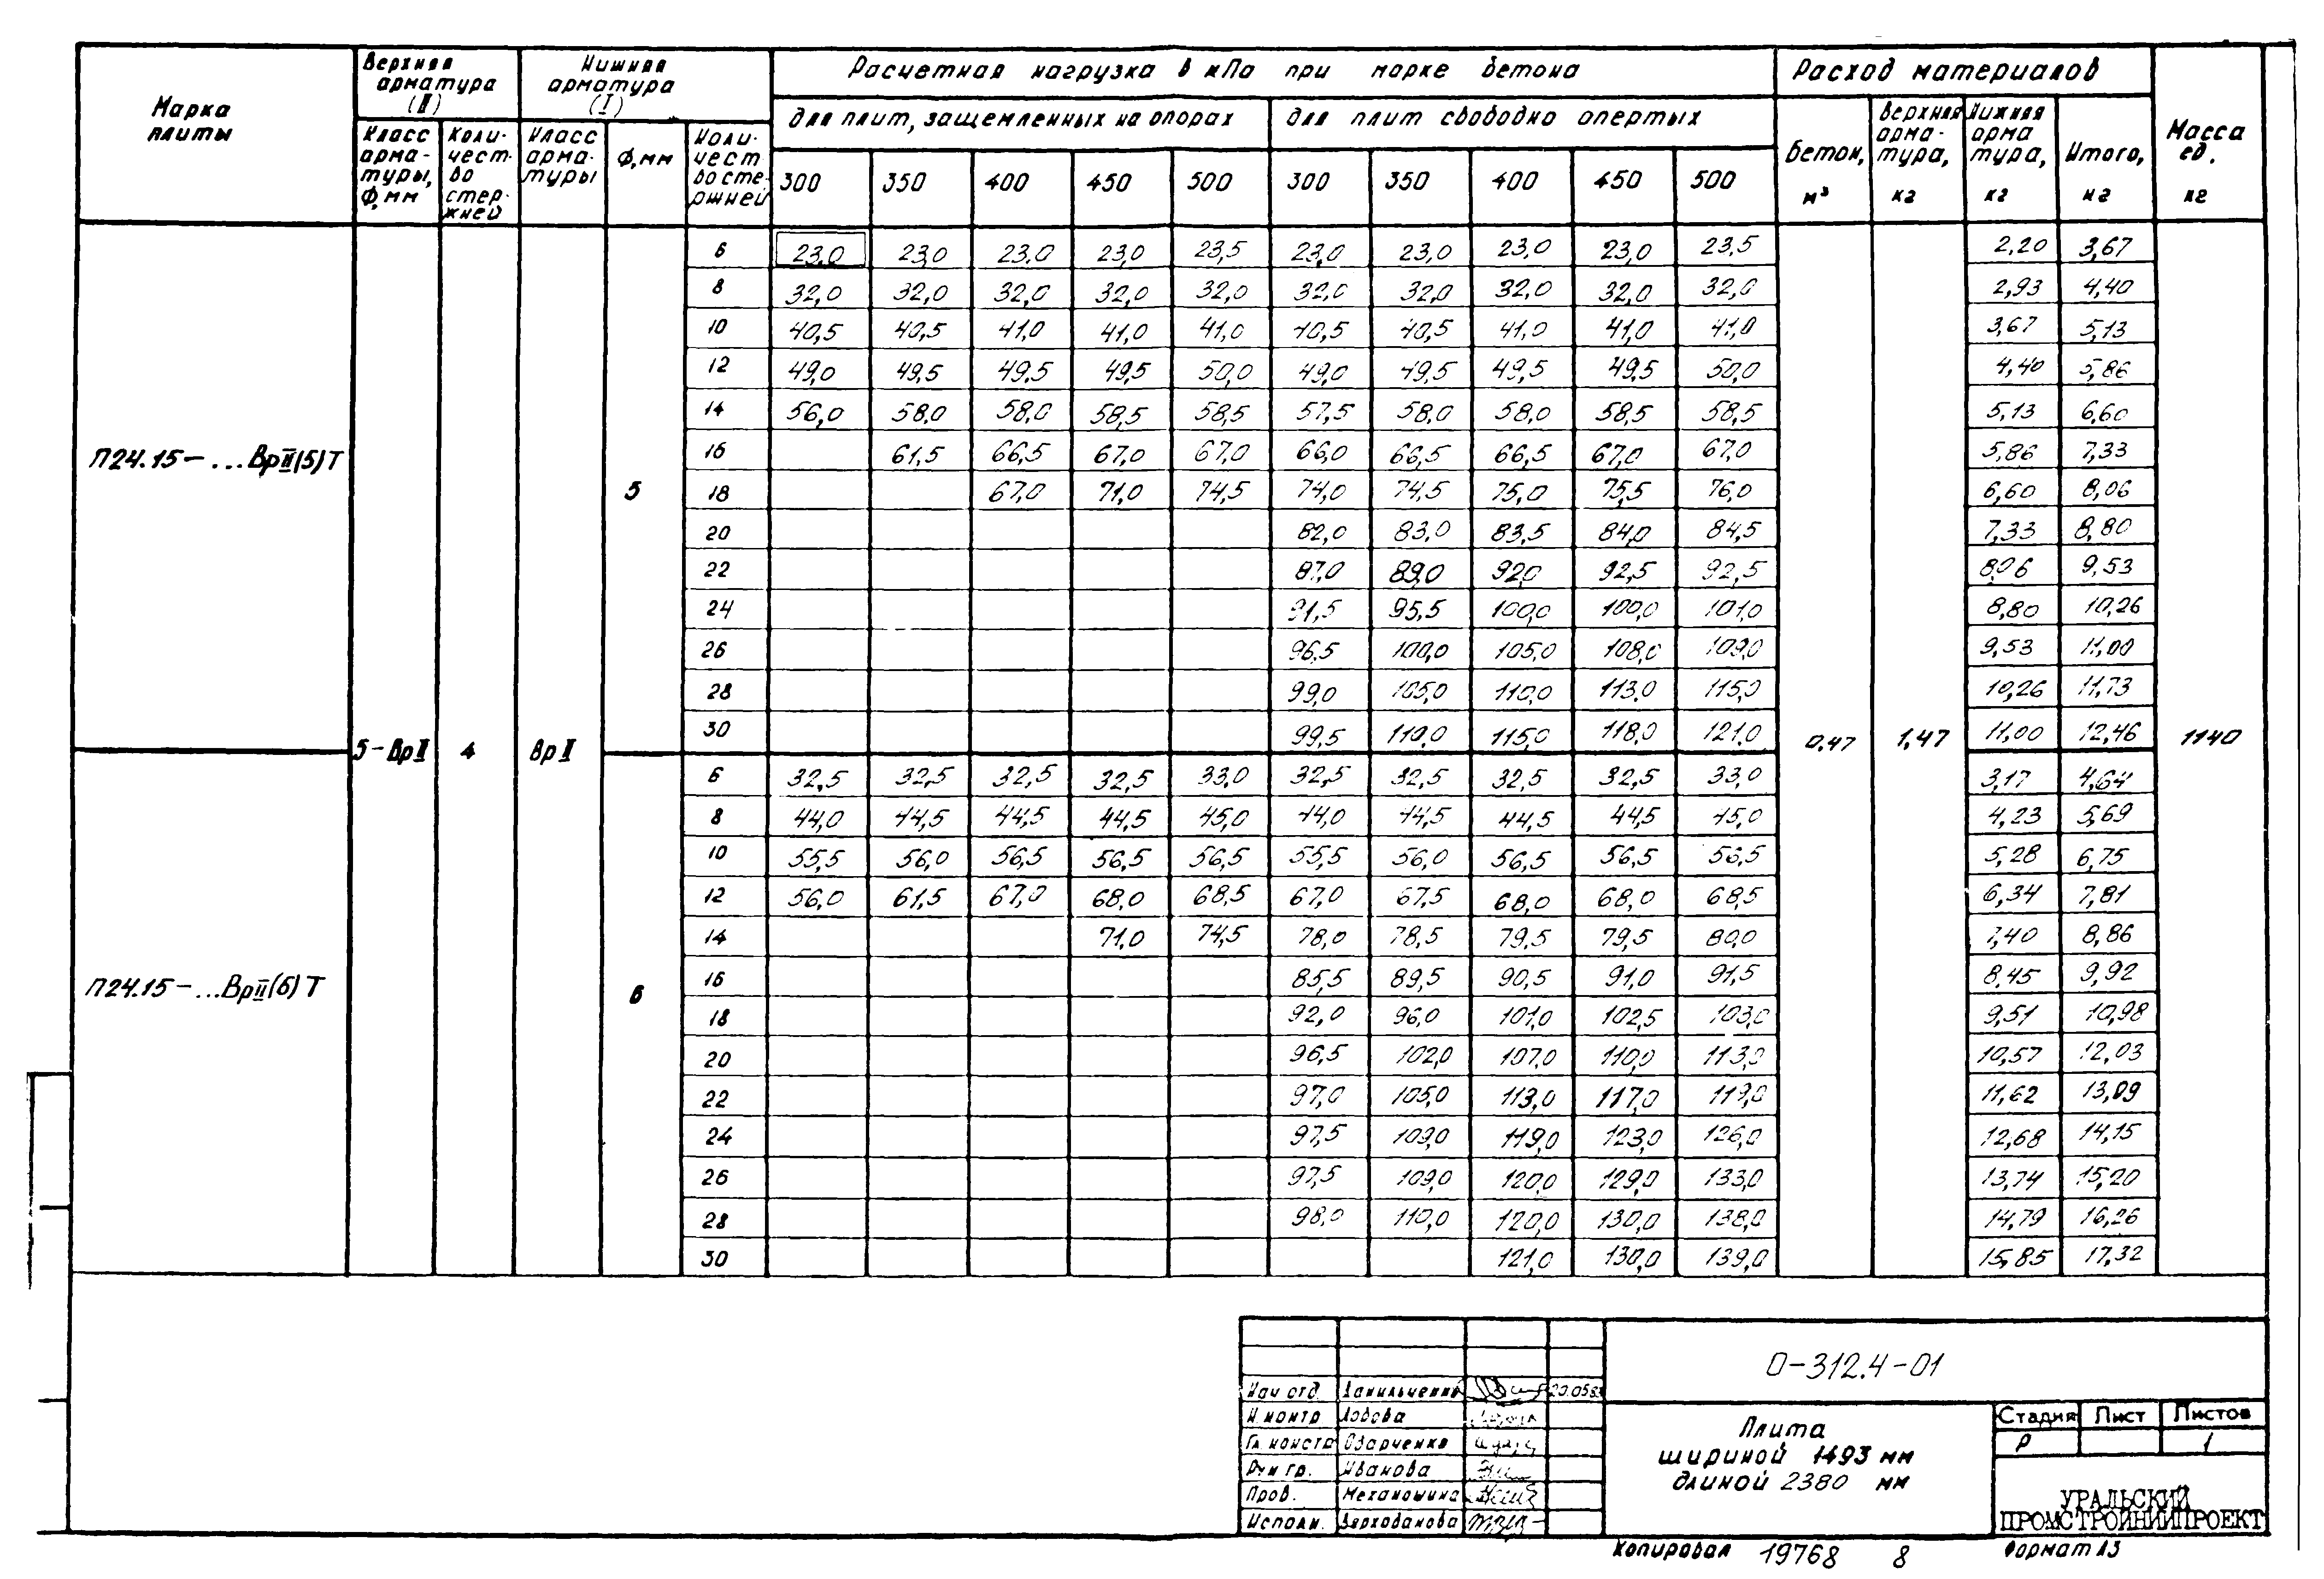 Марка плиты
Верхняя арматура (II)
Нижняя арматура (I)
Расчетная нагрузка в кПа при марке бетона
Расход материалов
Масса ед. кг
для плит, защемленных на опорах
для плит свободно опертых
Класс арматуры, Ф, мм
Количество стержней
Класс арматуры
Ф, мм
Количество стержней
300 350 400 450 500 300 350 400 450 500
Бетон, м³
Верхняя арматура, кг
Нижняя арматура, кг
Итого, кг
П24.15-...ВрII(5)Т
5
6 23.0 23,0 23.0 23,0 23,5 23,0 23,0 23,0 23,0 23,5 2,20 3,67
8 32,0 32,0 32,0 32,0 32,0 32,0 32,0 32,0 32,0 32,0 2,93 4,40
10 40,5 40,5 41,0 41,0 41,0 40,5 40,5 41,0 41,0 41,0 3,67 5,13
12 49,0 49,5 49,5 49,5 50,0 49,0 49,5 49,5 49,5 50,0 4,40 5,86
14 56,0 58,0 58,0 58,5 58,5 57,5 58,0 58,0 58,5 58,5 5,13 6,60
16 61,5 66,5 67,0 67,0 66,0 66,5 66,5 67,0 67,0 5,86 7,33
18 67,0 71,0 74,5 74,0 74,5 75,0 75,5 76,0 6,60 8,06
20 82,0 83,0 83,5 84,0 84,5 7,33 8,80
22 87,0 89,0 92,0 92,5 92,5 8,06 9,53
24 91,5 95,5 100,0 100,0 101,0 8,80 10,26
26 96,5 100,0 105,0 108,0 109,0 9,53 11,00
28 99,0 105,0 110,0 113,0 115,0 10,26 11,73
30 99,5 110,0 115,0 118,0 121,0 11,00 12,46
5-ВрII 4 ВрII 0,47 1,47 1140
П24.15-...ВрII(6)Т
6
6 32,5 32,5 32,5 32,5 33,0 32,5 32,5 32,5 32,5 33,0 3,17 4,64
8 44,0 44,5 44,5 44,5 45,0 44,0 44,5 44,5 44,5 45,0 4,23 5,69
10 55,5 56,0 56,5 56,5 56,5 55,5 56,0 56,5 56,5 56,5 5,28 6,75
12 56,0 61,5 67,0 68,0 68,5 67,0 67,5 68,0 68,0 68,5 6,34 7,81
14 71,0 74,5 78,0 78,5 79,5 79,5 80,0 7,40 8,86
16 85,5 89,5 90,5 91,0 91,5 8,45 9,92
18 92,0 96,0 101,0 102,5 103,0 9,51 10,98
20 96,5 102,0 107,0 110,0 113,0 10,57 12,03
22 97,0 105,0 113,0 117,0 119,0 11,62 13,09
24 97,5 109,0 119,0 123,0 126,0 12,68 14,15
26 97,5 109,0 120,0 129,0 133,0 13,74 15,20
28 98,0 110,0 120,0 130,0 138,0 14,79 16,26
30 121,0 130,0 139,0 15,85 17,32
О-312.4-01
Нач отд. Данильченко
Н контр Лобова
Гл констр Озарченко
Рук гр. Иванова
Пров. Механошина
Исполн. Верховданова
Плита
шириной 1493 мм
длиной 2380 мм
Стадия Лист Листов
Р 1
УРАЛЬСКИЙ
ПРОМСТРОЙНИИПРОЕКТ
Копировал 19768 8 Формат А3